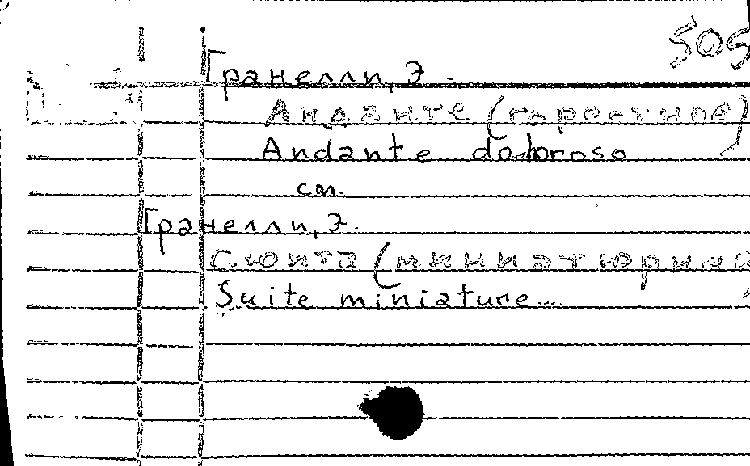 505
Гранелли, Э.
Анданте (горестное)
Andante doloroso
см.
Гранелли, Э.
Сюита (миниатюрная
Suite miniature...